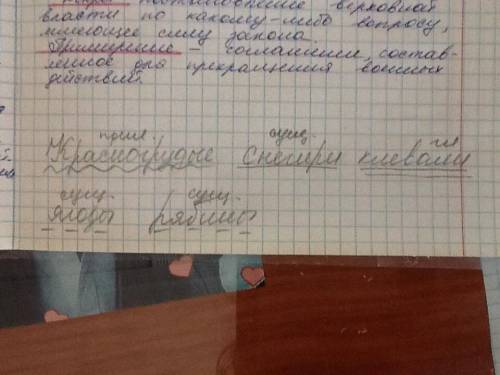 постановление верховной
власти по какому-либо вопросу,
имеющее силу закона.
Примирение – соглашение, состав-
ленное для прекращения военных
действий.
прил. сущ. гл
Красногрудые снегири клевали
сущ. сущ.
ягоды рябины